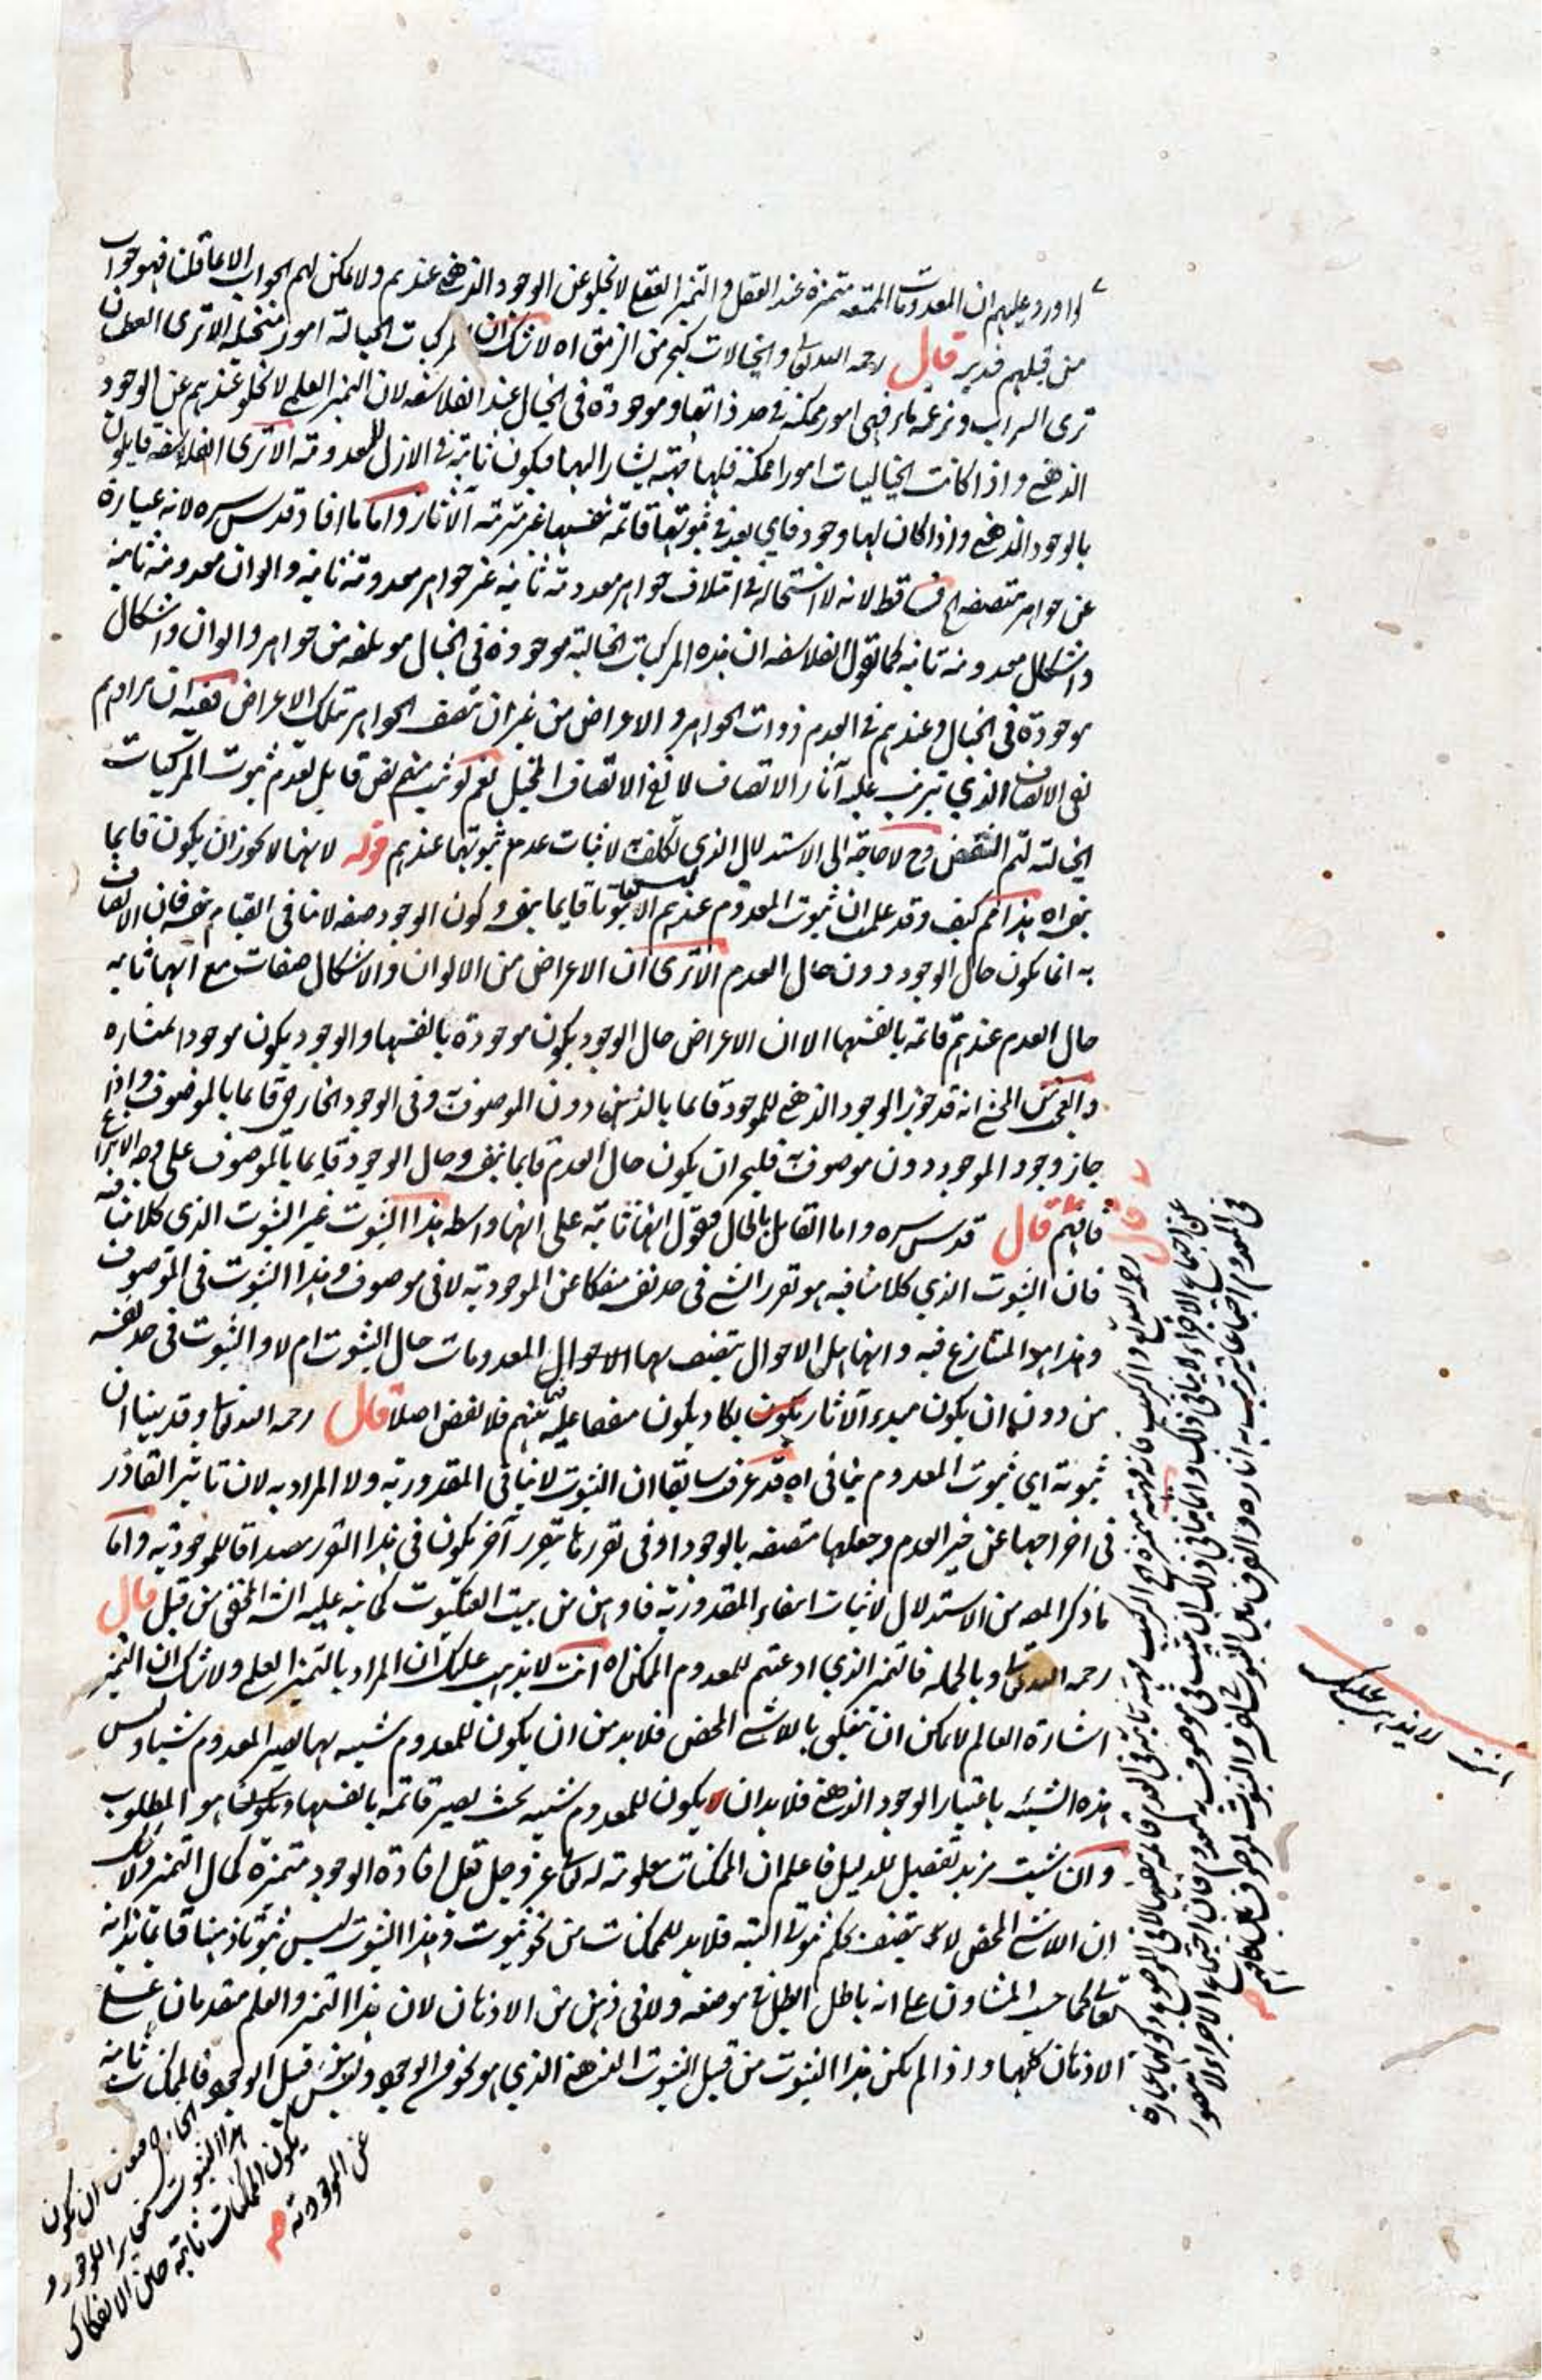 اذا ورد عليهم ان المعدومات الممتنعة متميزة عند العقل و التميز العقلي لا يخلو عن الوجود الذهني عندهم ولا يمكن لهم الجواب الا بما قلنا فهو جواب
من قبلهم فتدبر قال رحمه الله تعالى والخيالات كبحر من الزيبق اه لا شك ان المركبات الخيالية امور متخيلة الا ترى العطشان
ترى السراب و تزعمه ماء فهي امور ممكنة في حد ذاتها و موجودة في الخيال عند الفلاسفة لان التميز العلمي لا يخلو عندهم عن الوجود
الذهني و اذا كانت الخياليات امورا ممكنة فلها يشار اليها فيكون ثابتة في الازل للمعدومة الا ترى الفلاسفة قايلون
بالوجود الذهني و اذا كان لها وجود فاي بعد في ثبوتها قائمة بنفسها غير مترتبة الآثار و اما ما افاد قدس سره لانه عبارة
عن جواهر متصفة الخ فساقط لانه لا استحالة في ائتلاف جواهر معدومة ثابتة غير جواهر معدومة ثابتة و الوان معدومة ثابتة
و اشكال معدومة ثابتة كما تقول الفلاسفة ان هذه المركبات الخيالية موجودة في الخيال مؤلفة من جواهر و الوان و اشكال
موجودة في الخيال و عندهم في العدم ذوات الجواهر و الاعراض من غير ان تتصف الجواهر بتلك الاعراض ففيه ان مرادهم
نفي الاتصاف الذي يترتب عليه آثار الاتصاف لا نفي الاتصاف المخيل نعم لو ثبت منهم نص قايل بعدم ثبوت المركبات
الخيالية لتم النقض و ح لا حاجة الى الاستدلال الذي تكلف لاثبات عدم ثبوتها عندهم قوله لانها لا يجوز ان يكون قايما
بنفسه اه هذا كيف و قد علمت ان ثبوت المعدوم عندهم ليس الا ثبوتا قايما بنفسه و كون الوجود صفة لا ينافي القيام بنفسه فان الاتصاف
به انما يكون حال الوجود دون حال العدم الا ترى ان الاعراض من الالوان و الاشكال صفات مع انها ثابتة
حال العدم عندهم قائمة بانفسها الا ان الاعراض حال الوجود يكون موجودة بانفسها و الوجود يكون موجودا
و العجب من المحشي انه قد جوز الوجود الذهني للموجود قايما بالذهن دون الموصوف و في الوجود الخارجي قايما بالموصوف و اذا
جاز وجود الموجود دون موصوف فليجز ان يكون حال العدم قايما بنفسه و حال الوجود قايما بالموصوف على وجه الانتزاع
فافهم قال قدس سره و اما القايل بالحال فيقول انها ثابتة على انها واسطة هذا الثبوت غير الثبوت الذي كلامنا فيه
فان الثبوت الذي كلامنا فيه هو تقرر الشئ في حد نفسه منفكا عن الموجودية لا في موصوف و هذا الثبوت في الموصوف
و هذا هو المتنازع فيه و انها هل الاحوال يتصف بها المعدومات حال الثبوت ام لا و الثبوت في حد نفسه
من دون ان يكون مبدء الآثار يكاد يكون متفقا عليه بينهم فلا نقض اصلا قال رحمه الله تعالى و قد بينا ان
ثبوته اي ثبوت المعدوم ينافي اه قد عرفت سابقا ان الثبوت لا ينافي المقدورية و لا المراد به لان تاثير القادر
في اخراجها عن حيز العدم و جعلها متصفة بالوجود او في تقررها بتقرر آخر يكون في هذا التقرر مصداقا للموجودية و اما
ما ذكر المصه من الاستدلال لاثبات انتفاء المقدورية فاوهن من بيت العنكبوت كما نبه عليه المحشي من قبل قال
رحمه الله تعالى و بالجملة فالتميز الذي ادعيتم للمعدوم الممكن اه انت لا يذهب عليك ان المراد بالتميز العلمي ولا شك ان التميز
اشارة العالم لا يمكن ان يتعلق باللاشئ المحض فلا بد من ان يكون للمعدوم شيئية بها يصير المعدوم شيئا و ليس
هذه الشيئية باعتبار الوجود الذهني فلا بد ان يكون للمعدوم شيئية بحيث يصير قائمة بانفسها و هو المطلوب
و ان شئت مزيد تفصيل للدليل فاعلم ان الممكنات معلومة له تعالى عز و جل قبل افادة الوجود متميزة كمال التميز و لا شك
ان اللاشئ المحض لا يتصف بحكم ثبوتي البتة فلا بد للممكنات من نحو ثبوت و هذا الثبوت ليس ثبوتا ذهنيا قايما بذاته
تعالى كما حسب المشاؤن على انه باطل ابطل في موضعه ولا في ذهن من الاذهان لان هذا التميز و العلم مقدمان على
الاذهان كلها و اذا لم يكن هذا الثبوت من قبيل الثبوت الذهني الذي هو نحو من الوجود و ليس من قبيل الوجود فالممكنات ثابتة
الخارجي فتعين ان يكون
هذا الثبوت مغايرا للوجود و
يكون الممكنات ثابتة حين الانفكاك
عن الموجودية صح
قال
رحمه الله تعالى و المركب فانه متميزة اه المركب ثابتة في العدم قائمة بنفسها لا في الموضوع و كونها عبارة
عن اجتماع الاجزاء لا ينافي ذلك و انما ينافي ذلك ان يثبت في موصوف معدوم فان اجتماع الاجزاء لا يتصور
في المعدوم اجتماعا يترتب به اثاره و الفرق بين الثبوت بنفسه و الثبوت لموصوف بين فافهم صح
انت لا يذهب عليك